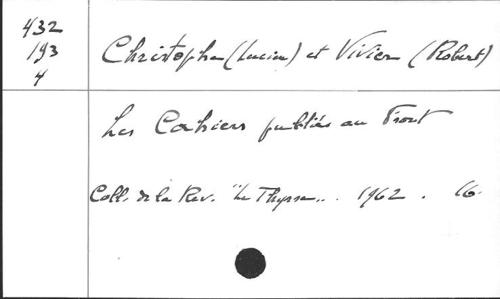 432
193
4
Christophe (Lucien) et Vivier (Robert)
Les Cahiers publiés au Front
Coll. de la Rev. "Le Thyrse". . 1962 . 16.